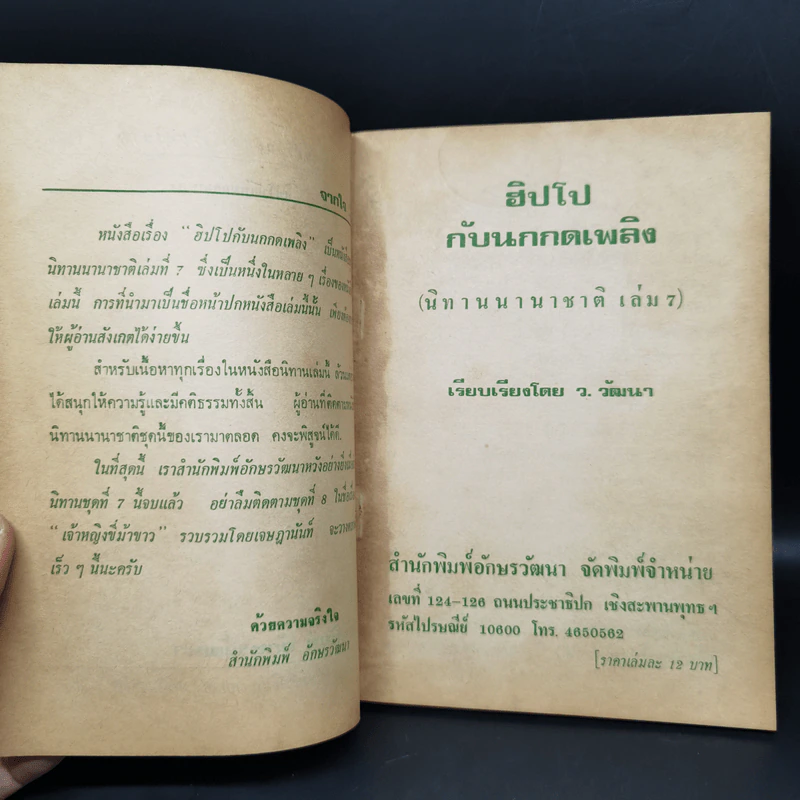 จากใจ
หนังสือเรื่อง "ฮิปโปกับนกกดเพลิง"
นิทานนานาชาติเล่มที่ 7 ซึ่งเป็นหนึ่งในหลาย ๆ
เล่มนี้ การที่นำมาเป็นชื่อหน้าปกหนังสือเล่มนี้นั้น
ให้ผู้อ่านสังเกตได้ง่ายขึ้น
สำหรับเนื้อหาทุกเรื่องในหนังสือนิทานเล่มนี้
ได้สนุกให้ความรู้และมีคติธรรมทั้งสิ้น ผู้อ่านที่ติดตาม
นิทานนานาชาติชุดนี้ของเรามาตลอด คงจะพิสูจน์ได้ดี.
ในที่สุดนี้ เราสำนักพิมพ์อักษรวัฒนาหวังอย่างยิ่ง
นิทานชุดที่ 7 นี้จบแล้ว อย่าลืมติดตามชุดที่ 8
"เจ้าหญิงขี่ม้าขาว" รวบรวมโดยเจษฎานันท์
เร็ว ๆ นี้นะครับ
ด้วยความจริงใจ
สำนักพิมพ์ อักษรวัฒนา
ฮิปโป
กับนกกดเพลิง
(นิทานนานาชาติ เล่ม 7)
เรียบเรียงโดย ว. วัฒนา
สำนักพิมพ์อักษรวัฒนา จัดพิมพ์จำหน่าย
เลขที่ 124-126 ถนนประชาธิปก เชิงสะพานพุทธ ฯ
รหัสไปรษณีย์ 10600 โทร. 4650562
[ราคาเล่มละ 12 บาท]